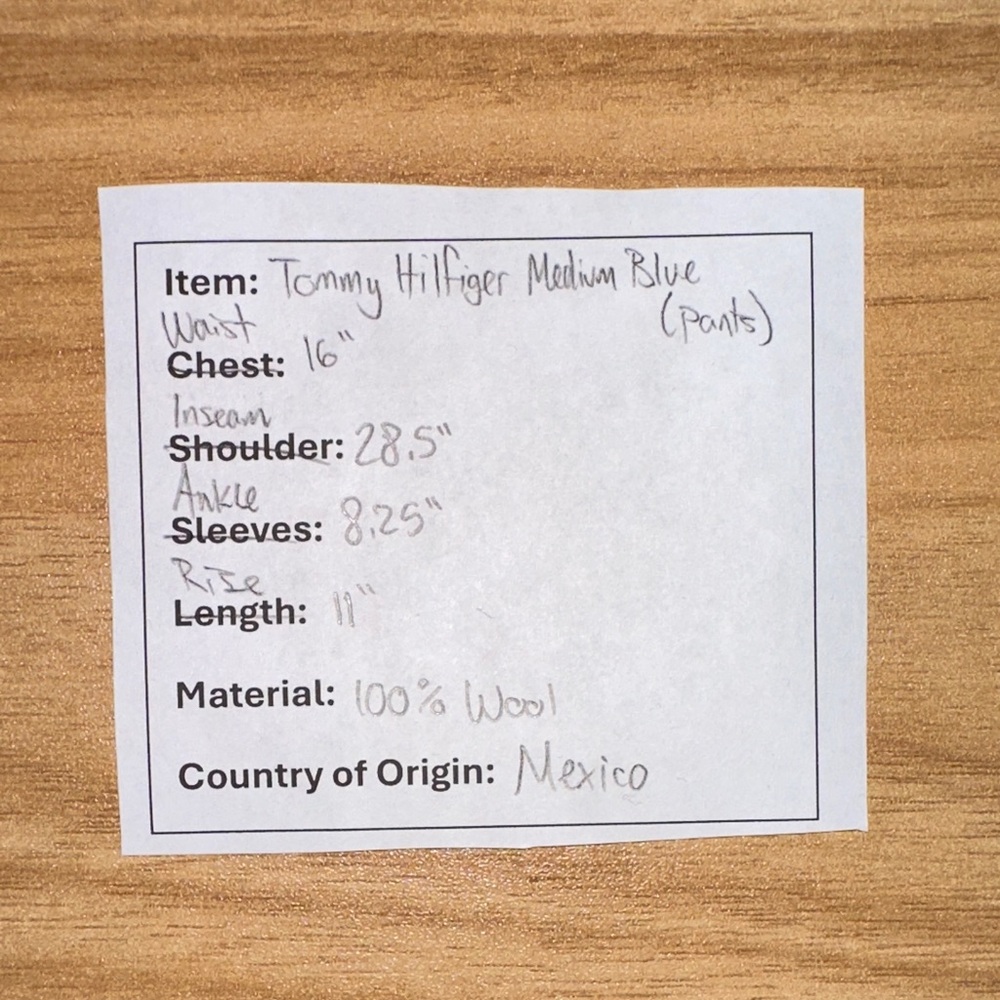 Item: Tommy Hilfiger Medium Blue
(pants)
Waist
Chest: 16"
Inseam
Shoulder: 28.5"
Ankle
Sleeves: 8.25"
Rise
Length: 11"
Material: 100% Wool
Country of Origin: Mexico